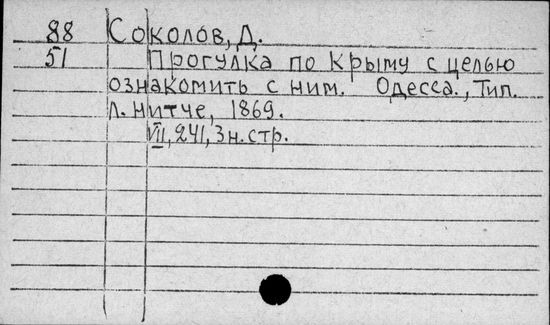 88 Соколов, Д.
51 Прогулка по Крыму с целью
ознакомить с ним. Одесса., Тип.
Л. Нитче, 1869.
VII, 241, 3 н. стр.